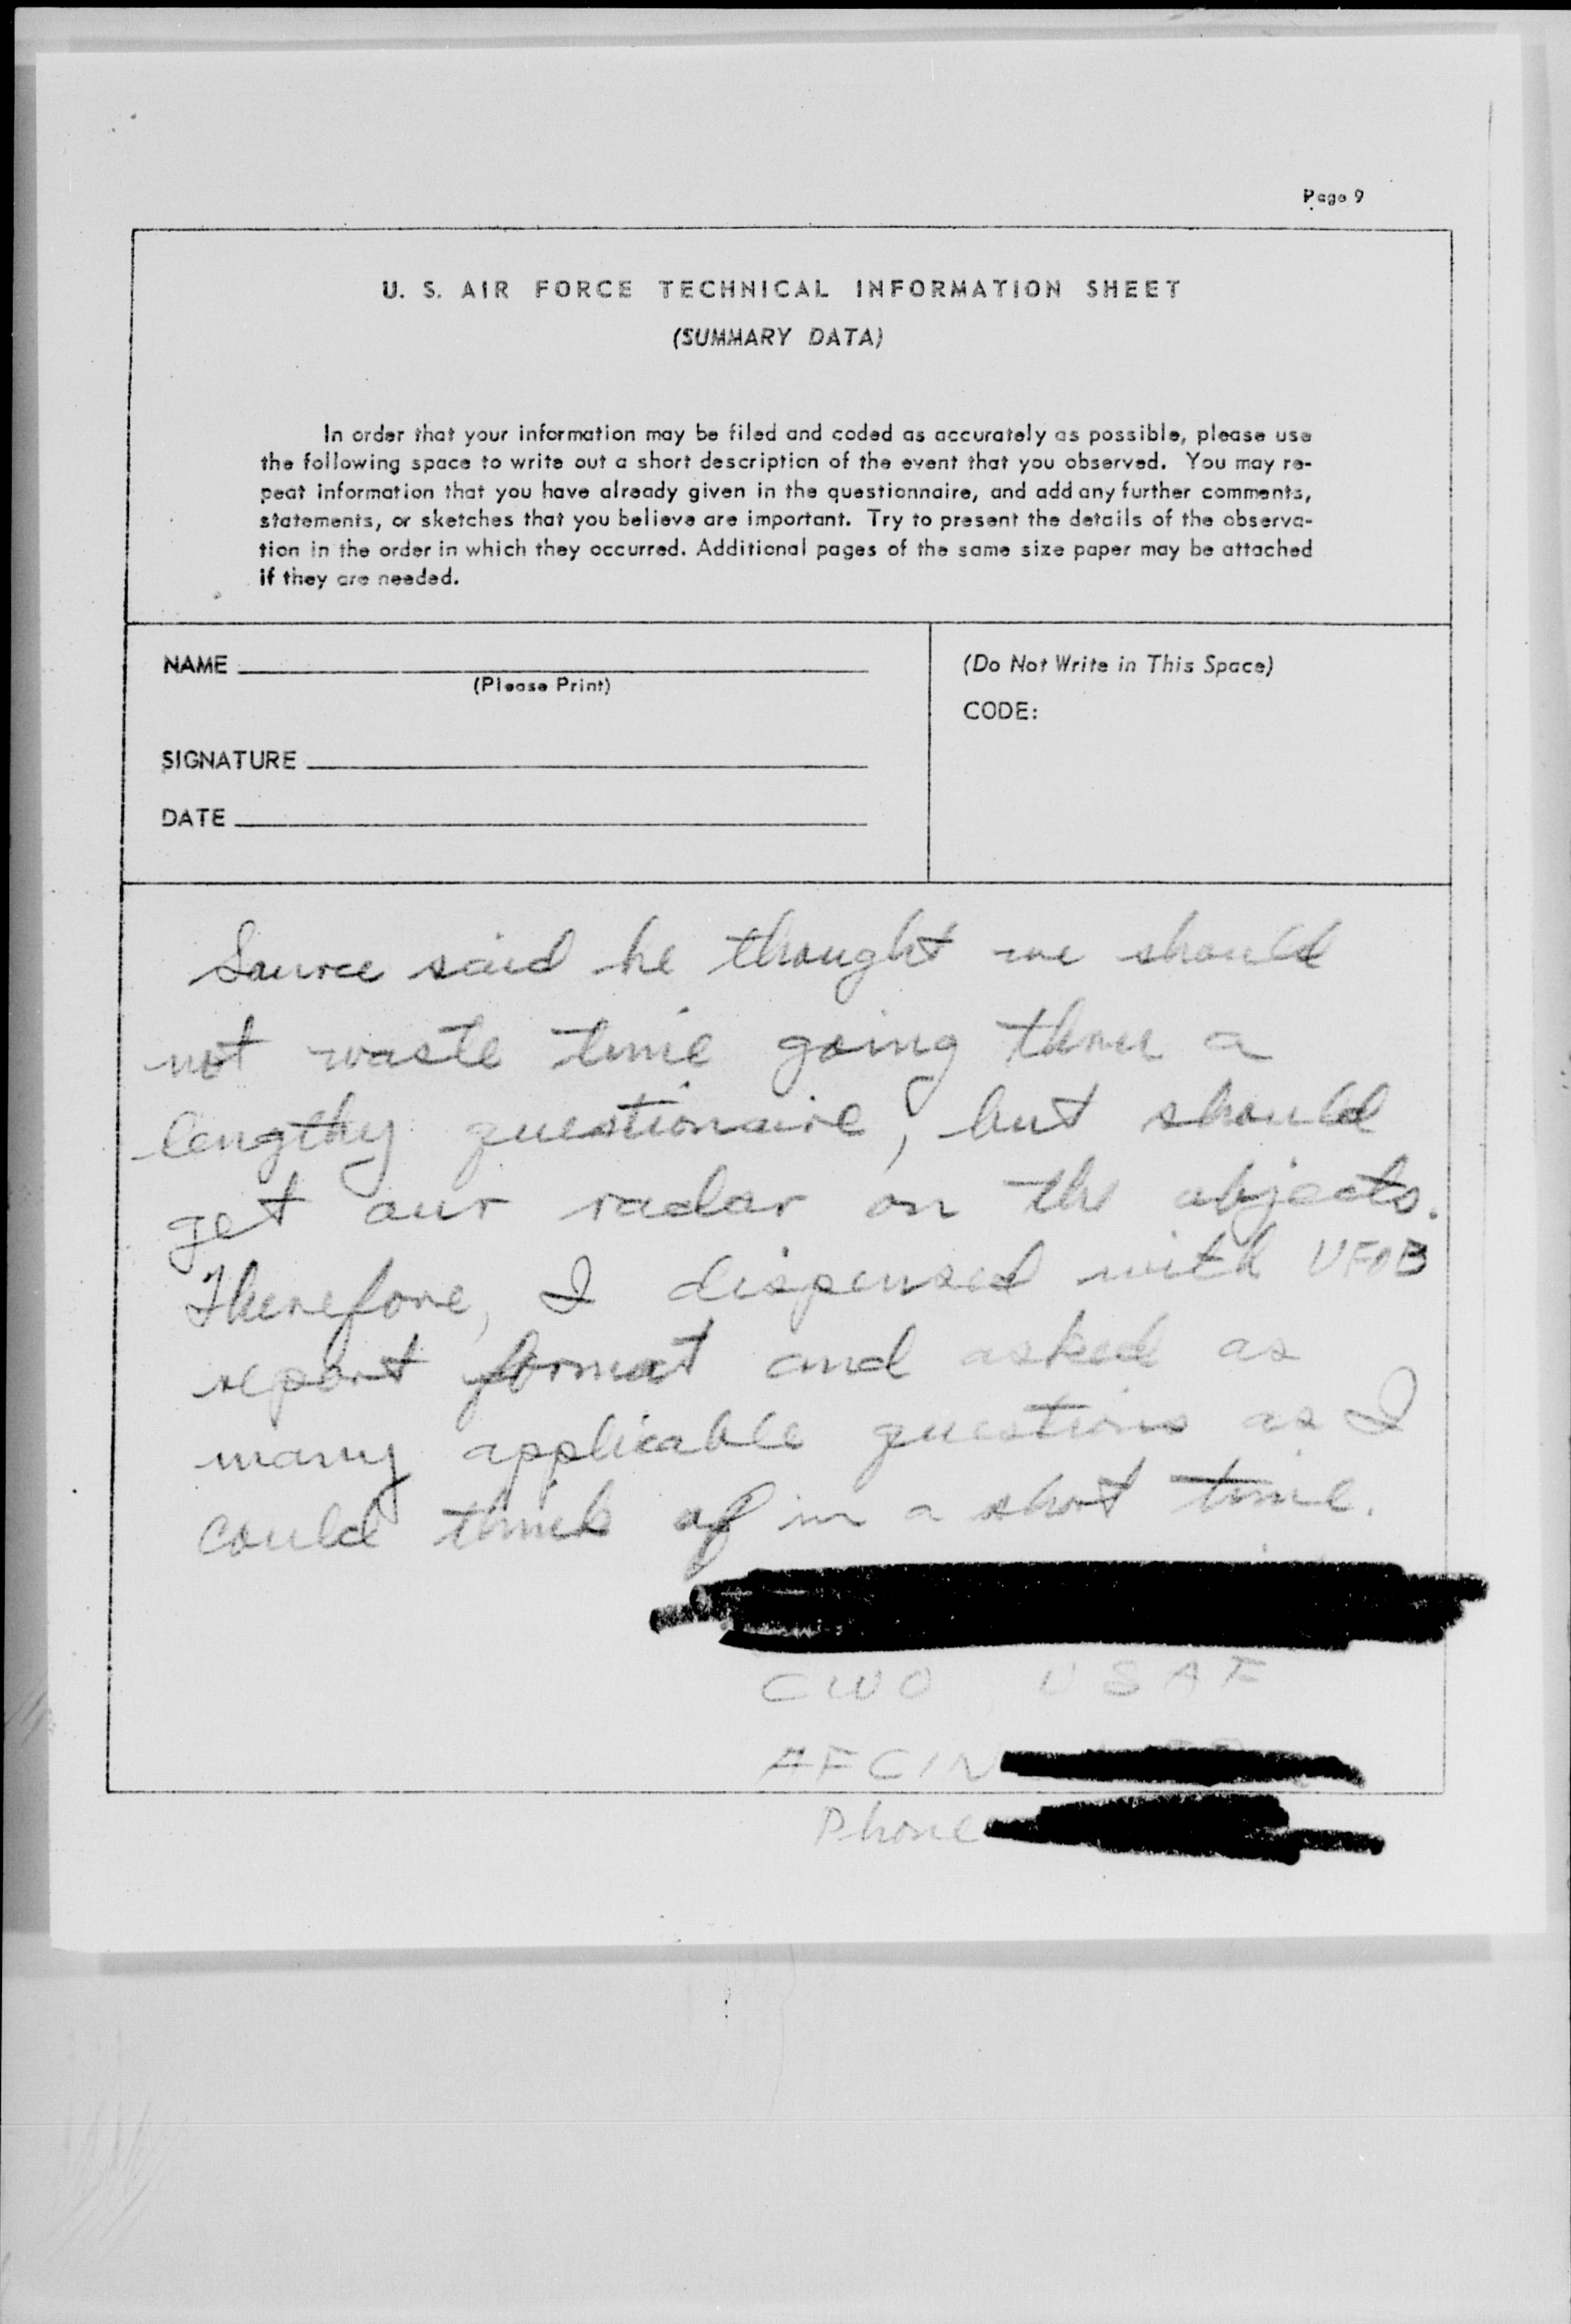 Page 9
U. S. AIR FORCE TECHNICAL INFORMATION SHEET
(SUMMARY DATA)
In order that your information may be filed and coded as accurately as possible, please use
the following space to write out a short description of the event that you observed. You may re-
peat information that you have already given in the questionnaire, and add any further comments,
statements, or sketches that you believe are important. Try to present the details of the observa-
tion in the order in which they occurred. Additional pages of the same size paper may be attached
if they are needed.
NAME
(Please Print)
SIGNATURE
DATE
(Do Not Write in This Space)
CODE:
Source said he thought we should
not waste time going thru a
lengthy questionaire, but should
get our radar on the objects.
Therefore, I dispensed with UFOB
report format and asked as
many applicable questions as I
could think of in a short time.
CWO USAF
AFCIN
Phone